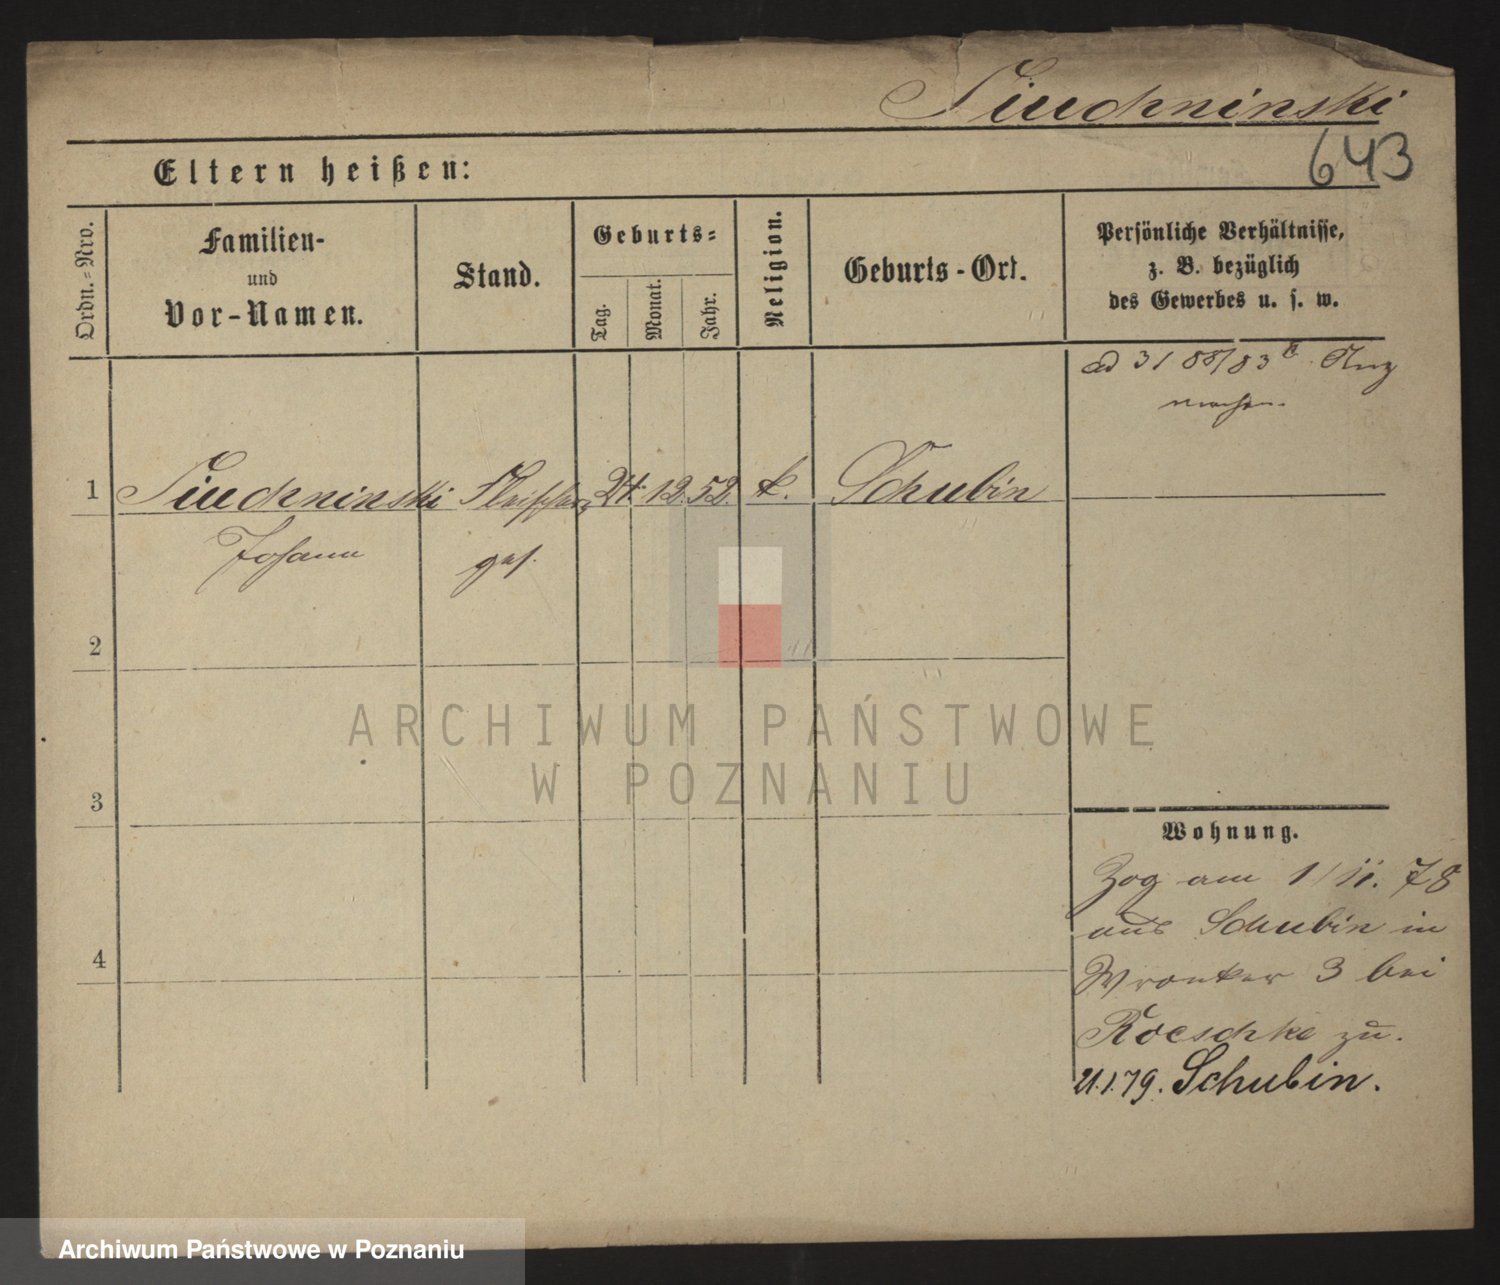 Siuchninski
643
Eltern heißen:
Ordn.-Nro.
Familien-
und
Vor-Namen.
Stand.
Geburts-
Tag.
Monat.
Jahr.
Religion.
Geburts-Ort.
Persönliche Verhältnisse,
z. B. bezüglich
des Gewerbes u. s. w.
1 Siuchninski Fleischer 24. 12. 52. k. Schubin
Johann ges.
2
3
4
ARCHIWUM PAŃSTWOWE
W POZNANIU
Wohnung.
Zog am 1/11. 78
aus Schubin in
Wronker 3 bei
Roeschke zu.
21.1.79. Schubin.
Archiwum Państwowe w Poznaniu